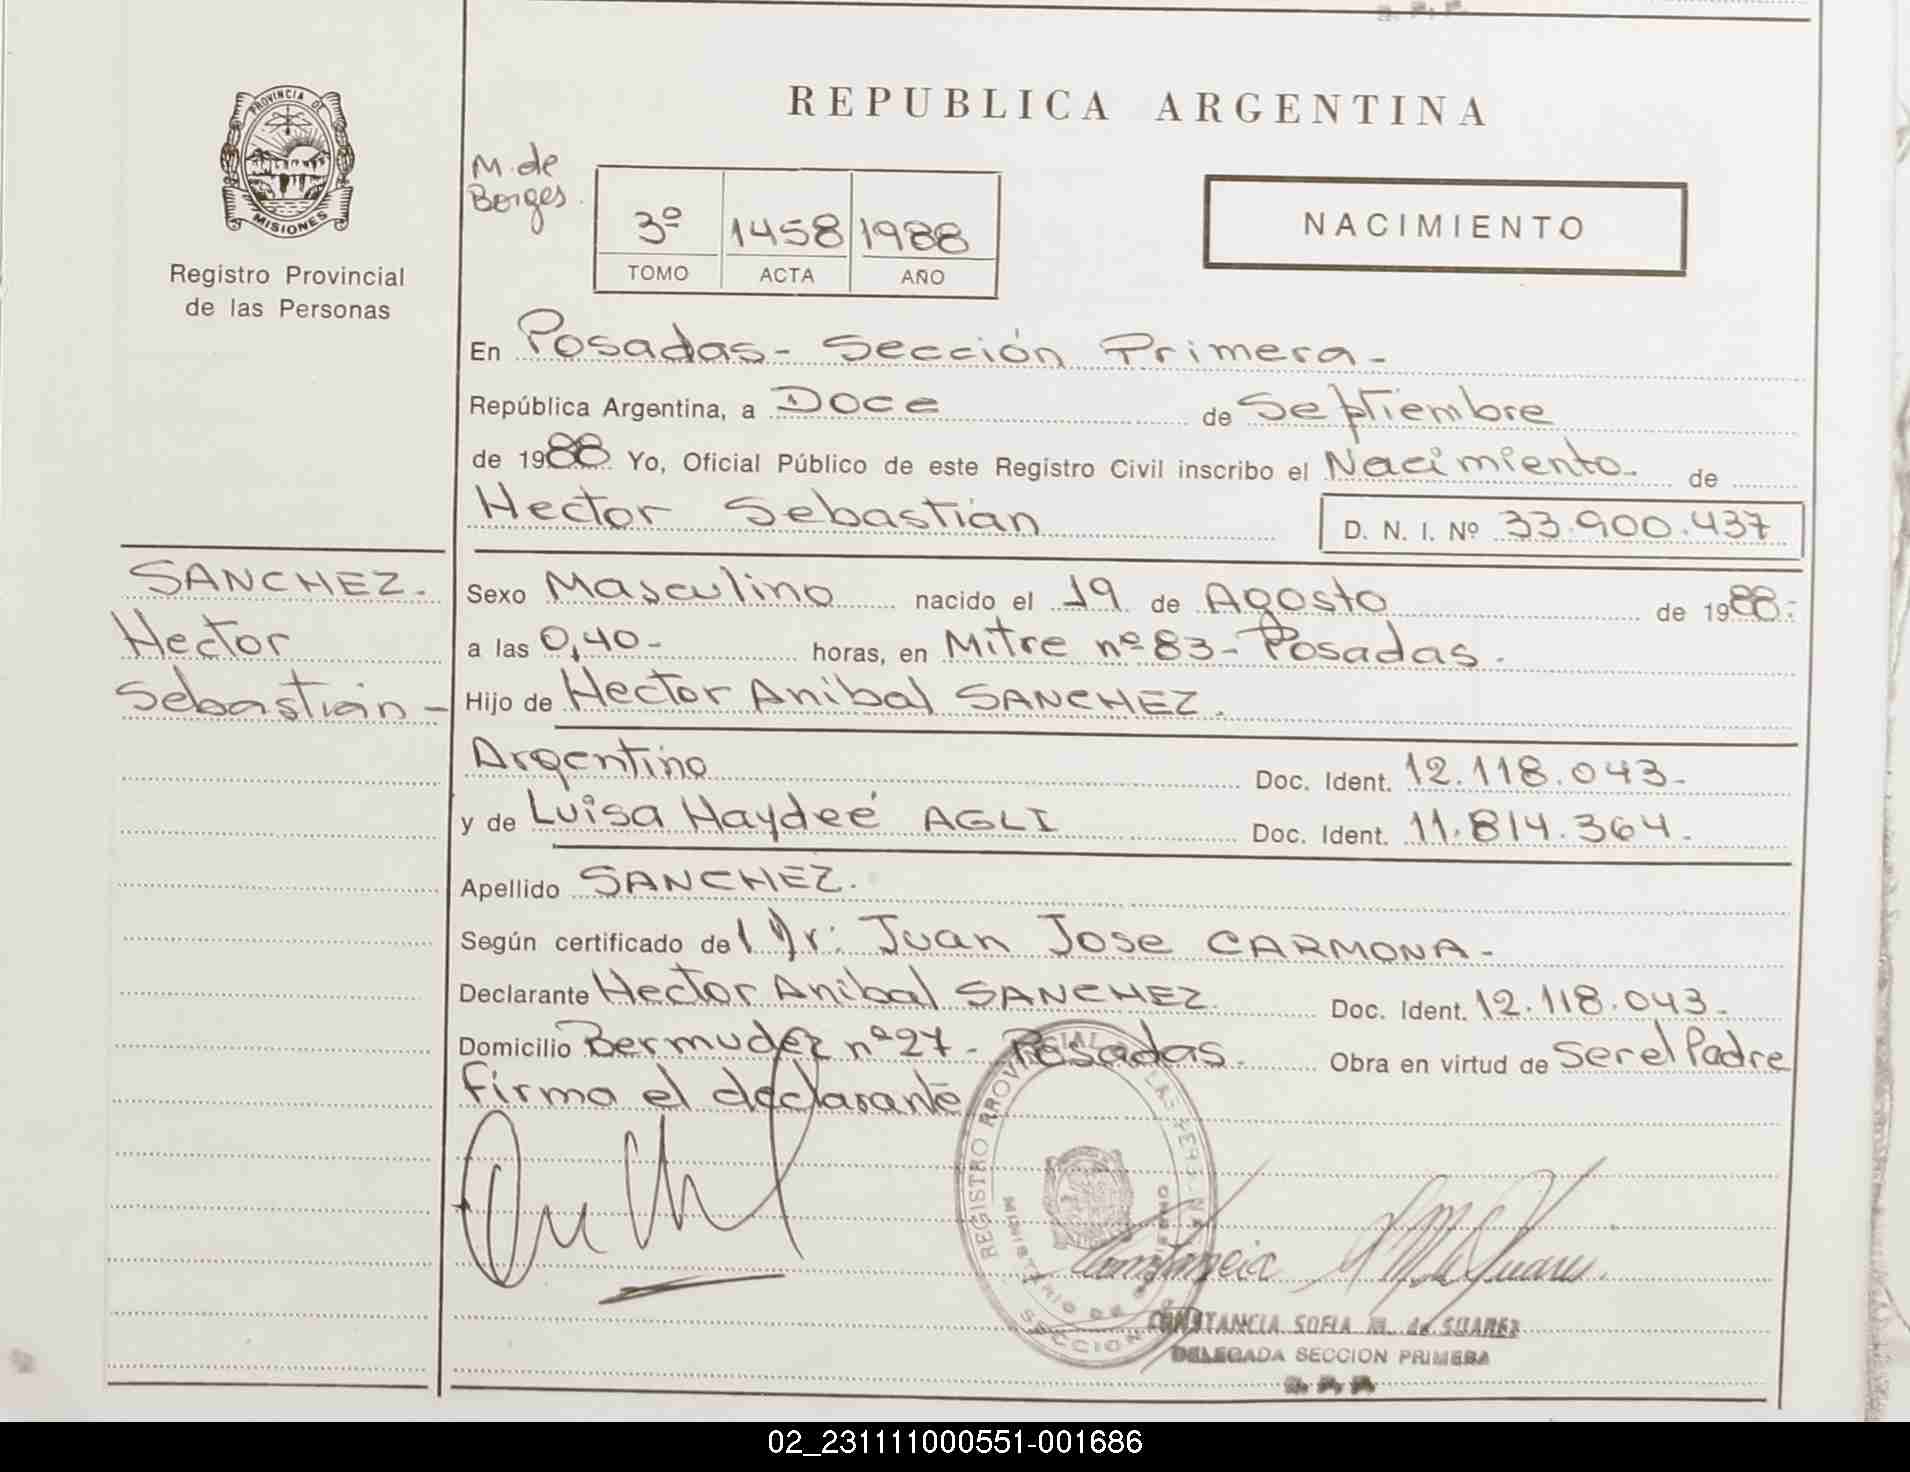 REPUBLICA ARGENTINA
PROVINCIA DE
MISIONES
Registro Provincial
de las Personas
M. de
Borges.
3º 1458 1988
TOMO ACTA AÑO
NACIMIENTO
En Posadas - Sección Primera -
República Argentina, a Doce de Septiembre
de 1988 Yo, Oficial Público de este Registro Civil inscribo el Nacimiento. de
Hector Sebastián
D. N. I. Nº 33.900.437
SANCHEZ.
Hector
Sebastián -
Sexo Masculino nacido el 19 de Agosto de 1988.-
a las 0,40- horas, en Mitre nº 83 - Posadas.
Hijo de Hector Anibal SANCHEZ.
Argentino Doc. Ident. 12.118.043-
y de Luisa Haydeé AGLI Doc. Ident. 11.814.364.
Apellido SANCHEZ.
Según certificado del Dr: Juan Jose CARMONA -
Declarante Hector Anibal SANCHEZ. Doc. Ident. 12.118.043-
Domicilio Bermudez nº 27 - Posadas. Obra en virtud de Ser el Padre
Firma el declarante
REGISTRO PROVINCIAL DE LAS PERSONAS
MINISTERIO DE GOBIERNO
SECCION
CONSTANCIA SOFIA M. de SUAREZ
DELEGADA SECCION PRIMERA
02_231111000551-001686